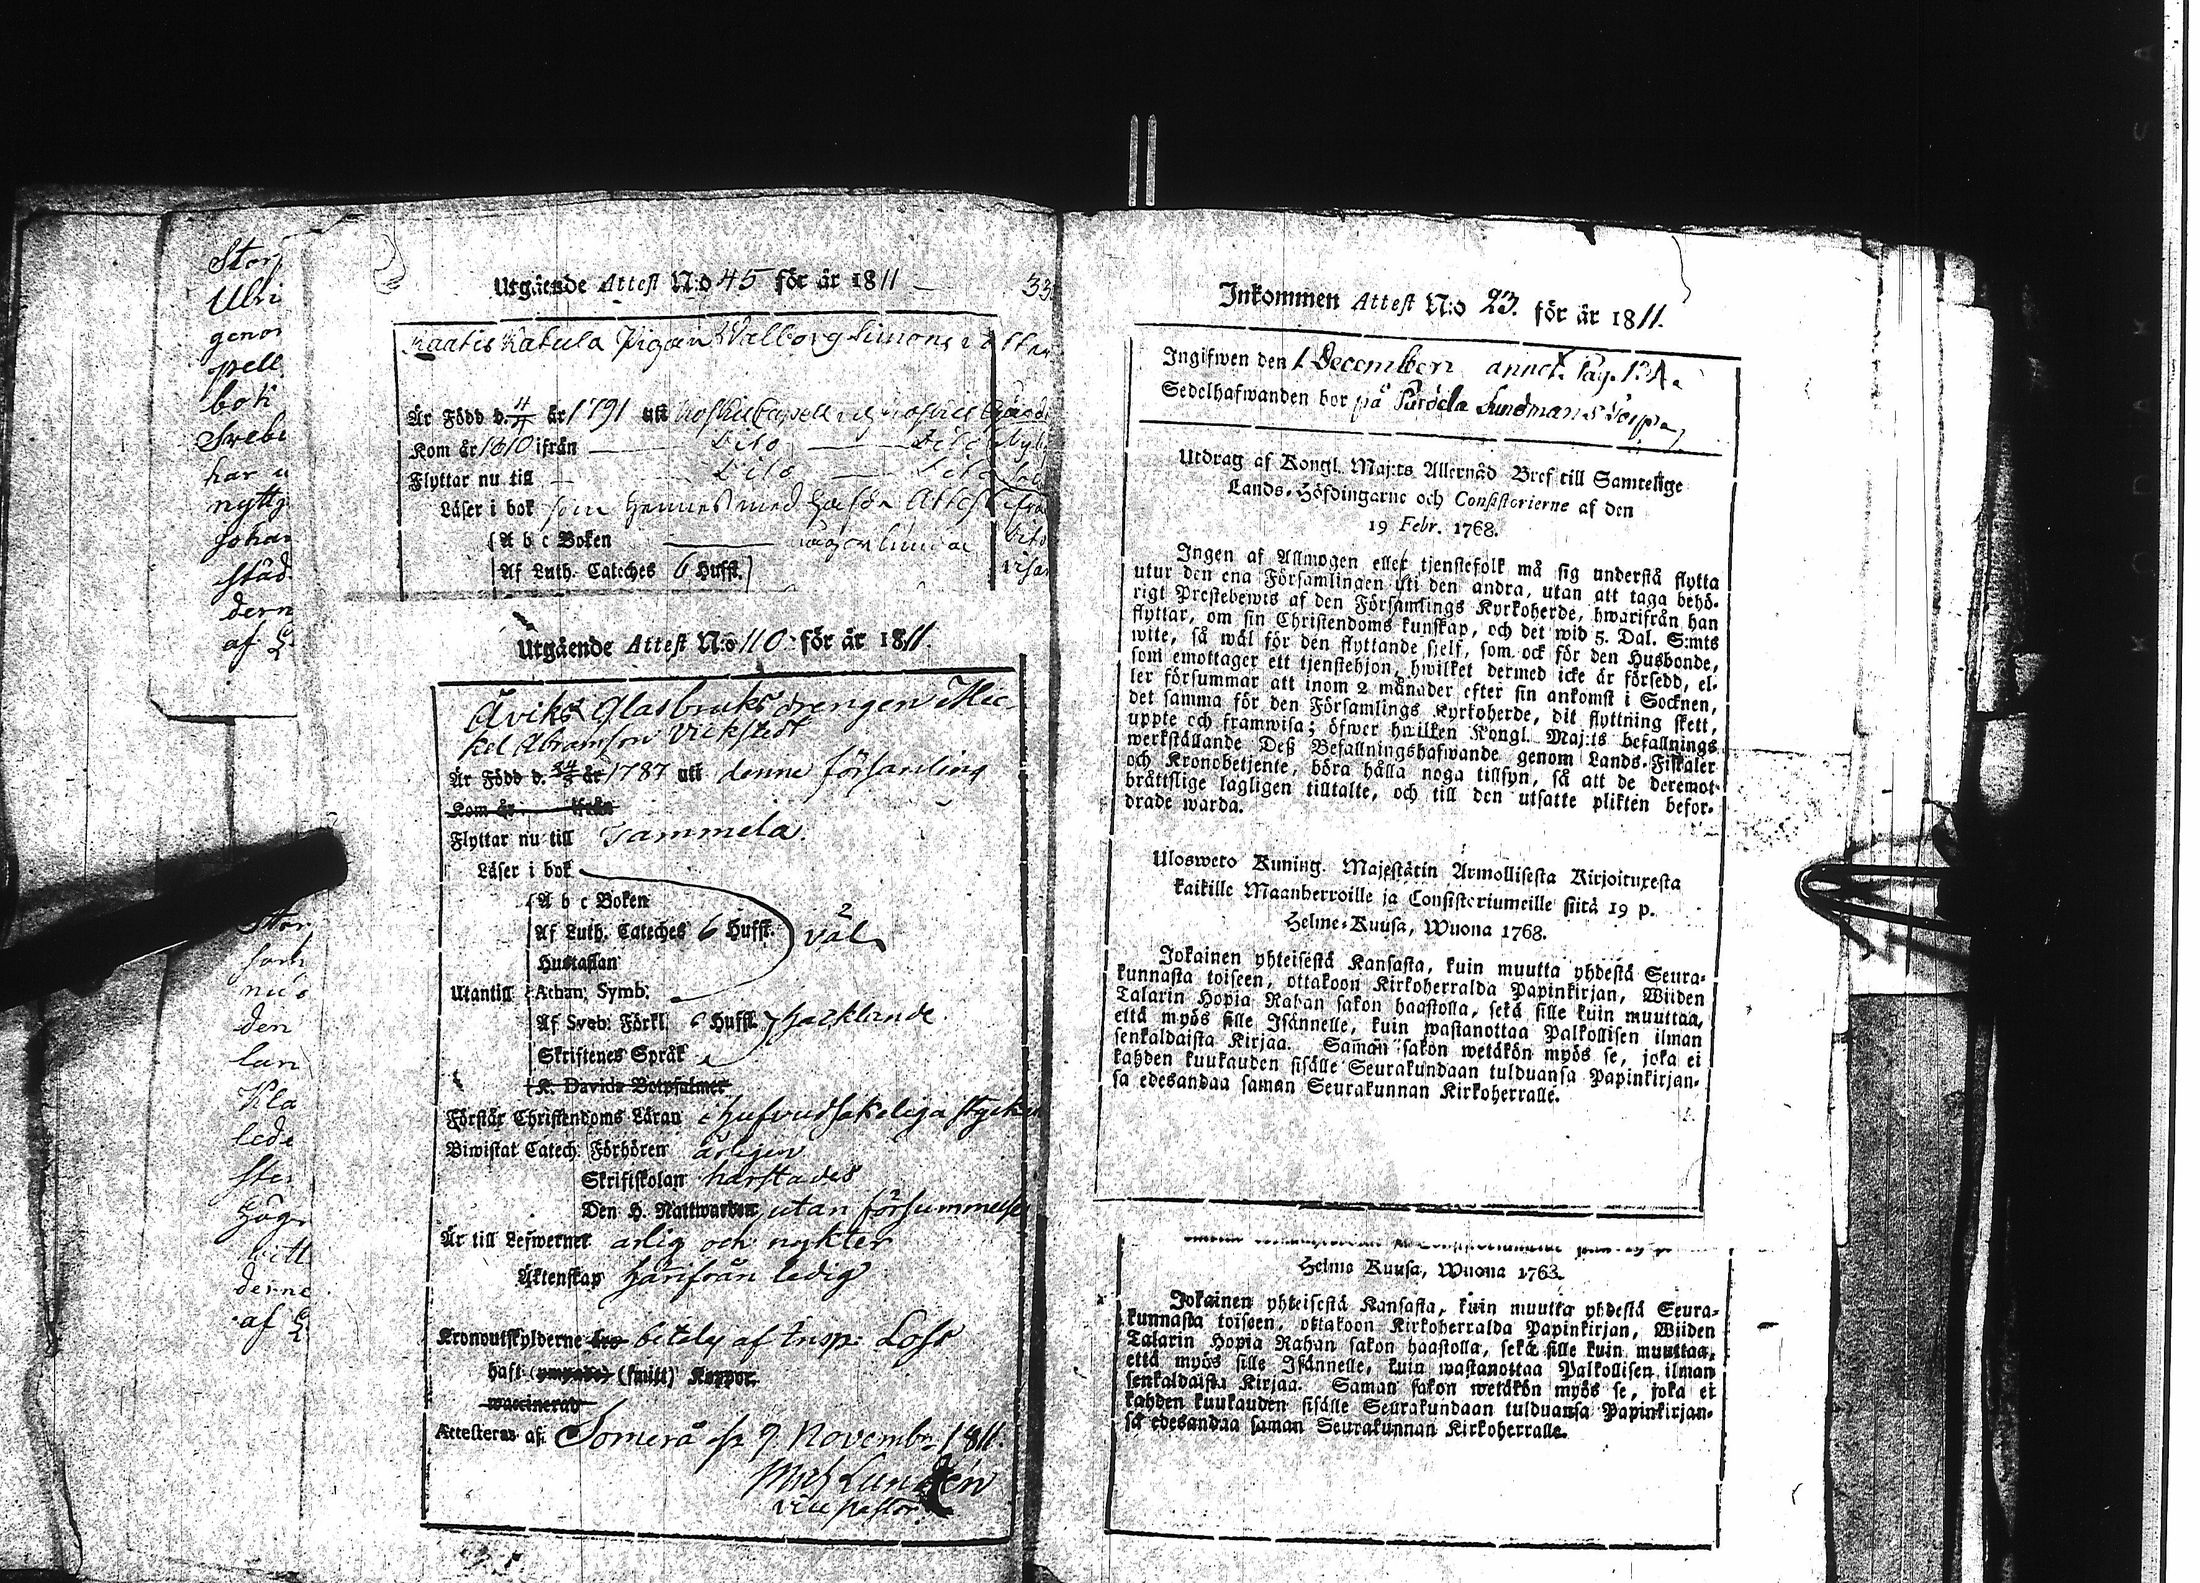 Stor
Ulri
genom
pell
boti
Svebi
har u
nyttj
Johan
städ
dern
af L
Stor
den
lan
Kla
lede
ster
derne
af L
Utgående Attest N:o 45 för år 1811
33
Kaatis Katula Pigan Walborg Simons dotter
Är Född d. 4/4 år 1791 uti
Kom år 1810 ifrån Dito Dito
Flyttar nu till Dito Dito
Läser i bok som hennes medhafde Attest
A b c Boken
Af Luth. Cateches 6 Hufst.
Utgående Attest N:o 110 för år 1811.
Åviks Glasbruks drengen Mic-
kel Abramson Vickstedt
Är Född d. 24/3 år 1787 uti denne församling
Kom år ifrån
Flyttar nu till Tammela.
Läser i bok
A b c Boken
Af Luth. Cateches 6 Hufst. väl
Hustaflan
Utantill Athan. Symb.
Af Sveb. Förkl. 6 Hufst. hacklande
Skriftenes Språk
K. Davids Botpsalmer
Förstår Christendoms Läran i hufvudsakeliga stycken
Biwistat Catech. Förhören årligen
Skriftskolan härstädes
Den H. Nattwarden utan försummelse
Är till Lefwernet ärlig och nykter
Äktenskap härifrån ledig
Kronoutskylderne äro betaly af Insp: Lofs
haft (ympade) (smitt) Koppor.
waccinerad
Attesteras af. Somero d. 9. Novembr. 1811.
Mich Lundén
vice pastor.
Inkommen Attest N:o 23. för år 1811.
Ingifwen den 1 December annot. Pag. 134.
Sedelhafwanden bor på Pardela Sundmans Torp
Utdrag af Kongl. Maj:ts Allernåd Bref till Samtelige
Lands-Höfdingarne och Consistorierne af den
19 Febr. 1768.
Ingen af Allmogen eller tjenstefolk må sig understå flytta
utur den ena Församlingen uti den andra, utan att taga behö-
rigt Prestebewis af den Församlings Kyrkoherde, hwarifrån han
flyttar, om sin Christendoms kunskap, och det wid 5. Dal. S:mts
wite, så wäl för den flyttande sjelf, som ock för den Husbonde,
som emottager ett tjenstehjon, hwilket dermed icke är försedd, el-
ler försummar att inom 2 månader efter sin ankomst i Socknen,
det samma för den Församlings Kyrkoherde, dit flyttning skett,
uppte och framwisa; öfwer hwilken Kongl. Maj:ts befallnings
werkställande Deß Befallningshafwande genom Lands-Fiskaler
och Kronobetjente, böra hålla noga tillsyn, så att de deremot
brättslige lagligen tilltalte, och till den utsatte plikten befor-
drade warda.
Ulosweto Kuning. Majestätin Armollisesta Kirjoituxesta
kaikille Maanherroille ja Consistoriumeille siitä 19 p.
Helme-Kuusa, Wuona 1768.
Jokainen yhteisestä Kansasta, kuin muutta yhdestä Seura-
kunnasta toiseen, ottakoon Kirkoherralda Papinkirjan, Wiiden
Talarin Hopia Rahan sakon haastolla, sekä sille kuin muuttaa,
että myös sille Isännelle, kuin wastanottaa Palkollisen ilman
senkaldaista Kirjaa. Saman sakon wetäkön myös se, joka ei
kahden kuukauden sisälle Seurakundaan tulduansa Papinkirjan-
sa edesandaa saman Seurakunnan Kirkoherralle.
Helme Kuusa, Wuona 1768.
Jokainen yhteisestä Kansasta, kuin muutta yhdestä Seura-
kunnasta toiseen, ottakoon Kirkoherralda Papinkirjan, Wiiden
Talarin Hopia Rahan sakon haastolla, sekä sille kuin muuttaa,
että myös sille Isännelle, kuin wastanottaa Palkollisen ilman
senkaldaista Kirjaa. Saman sakon wetäkön myös se, joka ei
kahden kuukauden sisälle Seurakundaan tulduansa Papinkirjan-
sa edesandaa saman Seurakunnan Kirkoherralle.